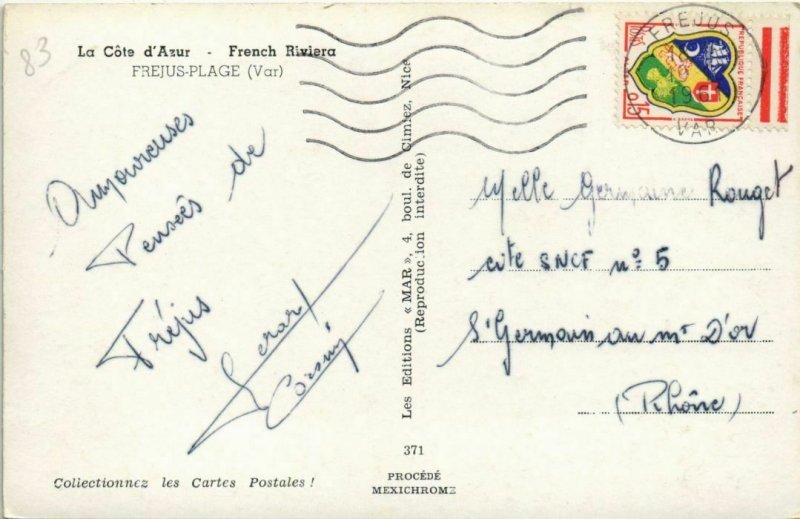 83
La Côte d'Azur - French Riviera
FREJUS-PLAGE (Var)
Amoureuses
Pensées de
Fréjus
Gerard
Les Editions « MAR », 4, boul. de Cimiez, Nice
(Reproduction interdite)
371
PROCÉDÉ
MEXICHROME
Collectionnez les Cartes Postales !
FREJUS
VAR
REPUBLIQUE FRANÇAISE
Melle Germaine Rouget
cité SNCF n° 5
St Germain au mt D'or
(Rhône)